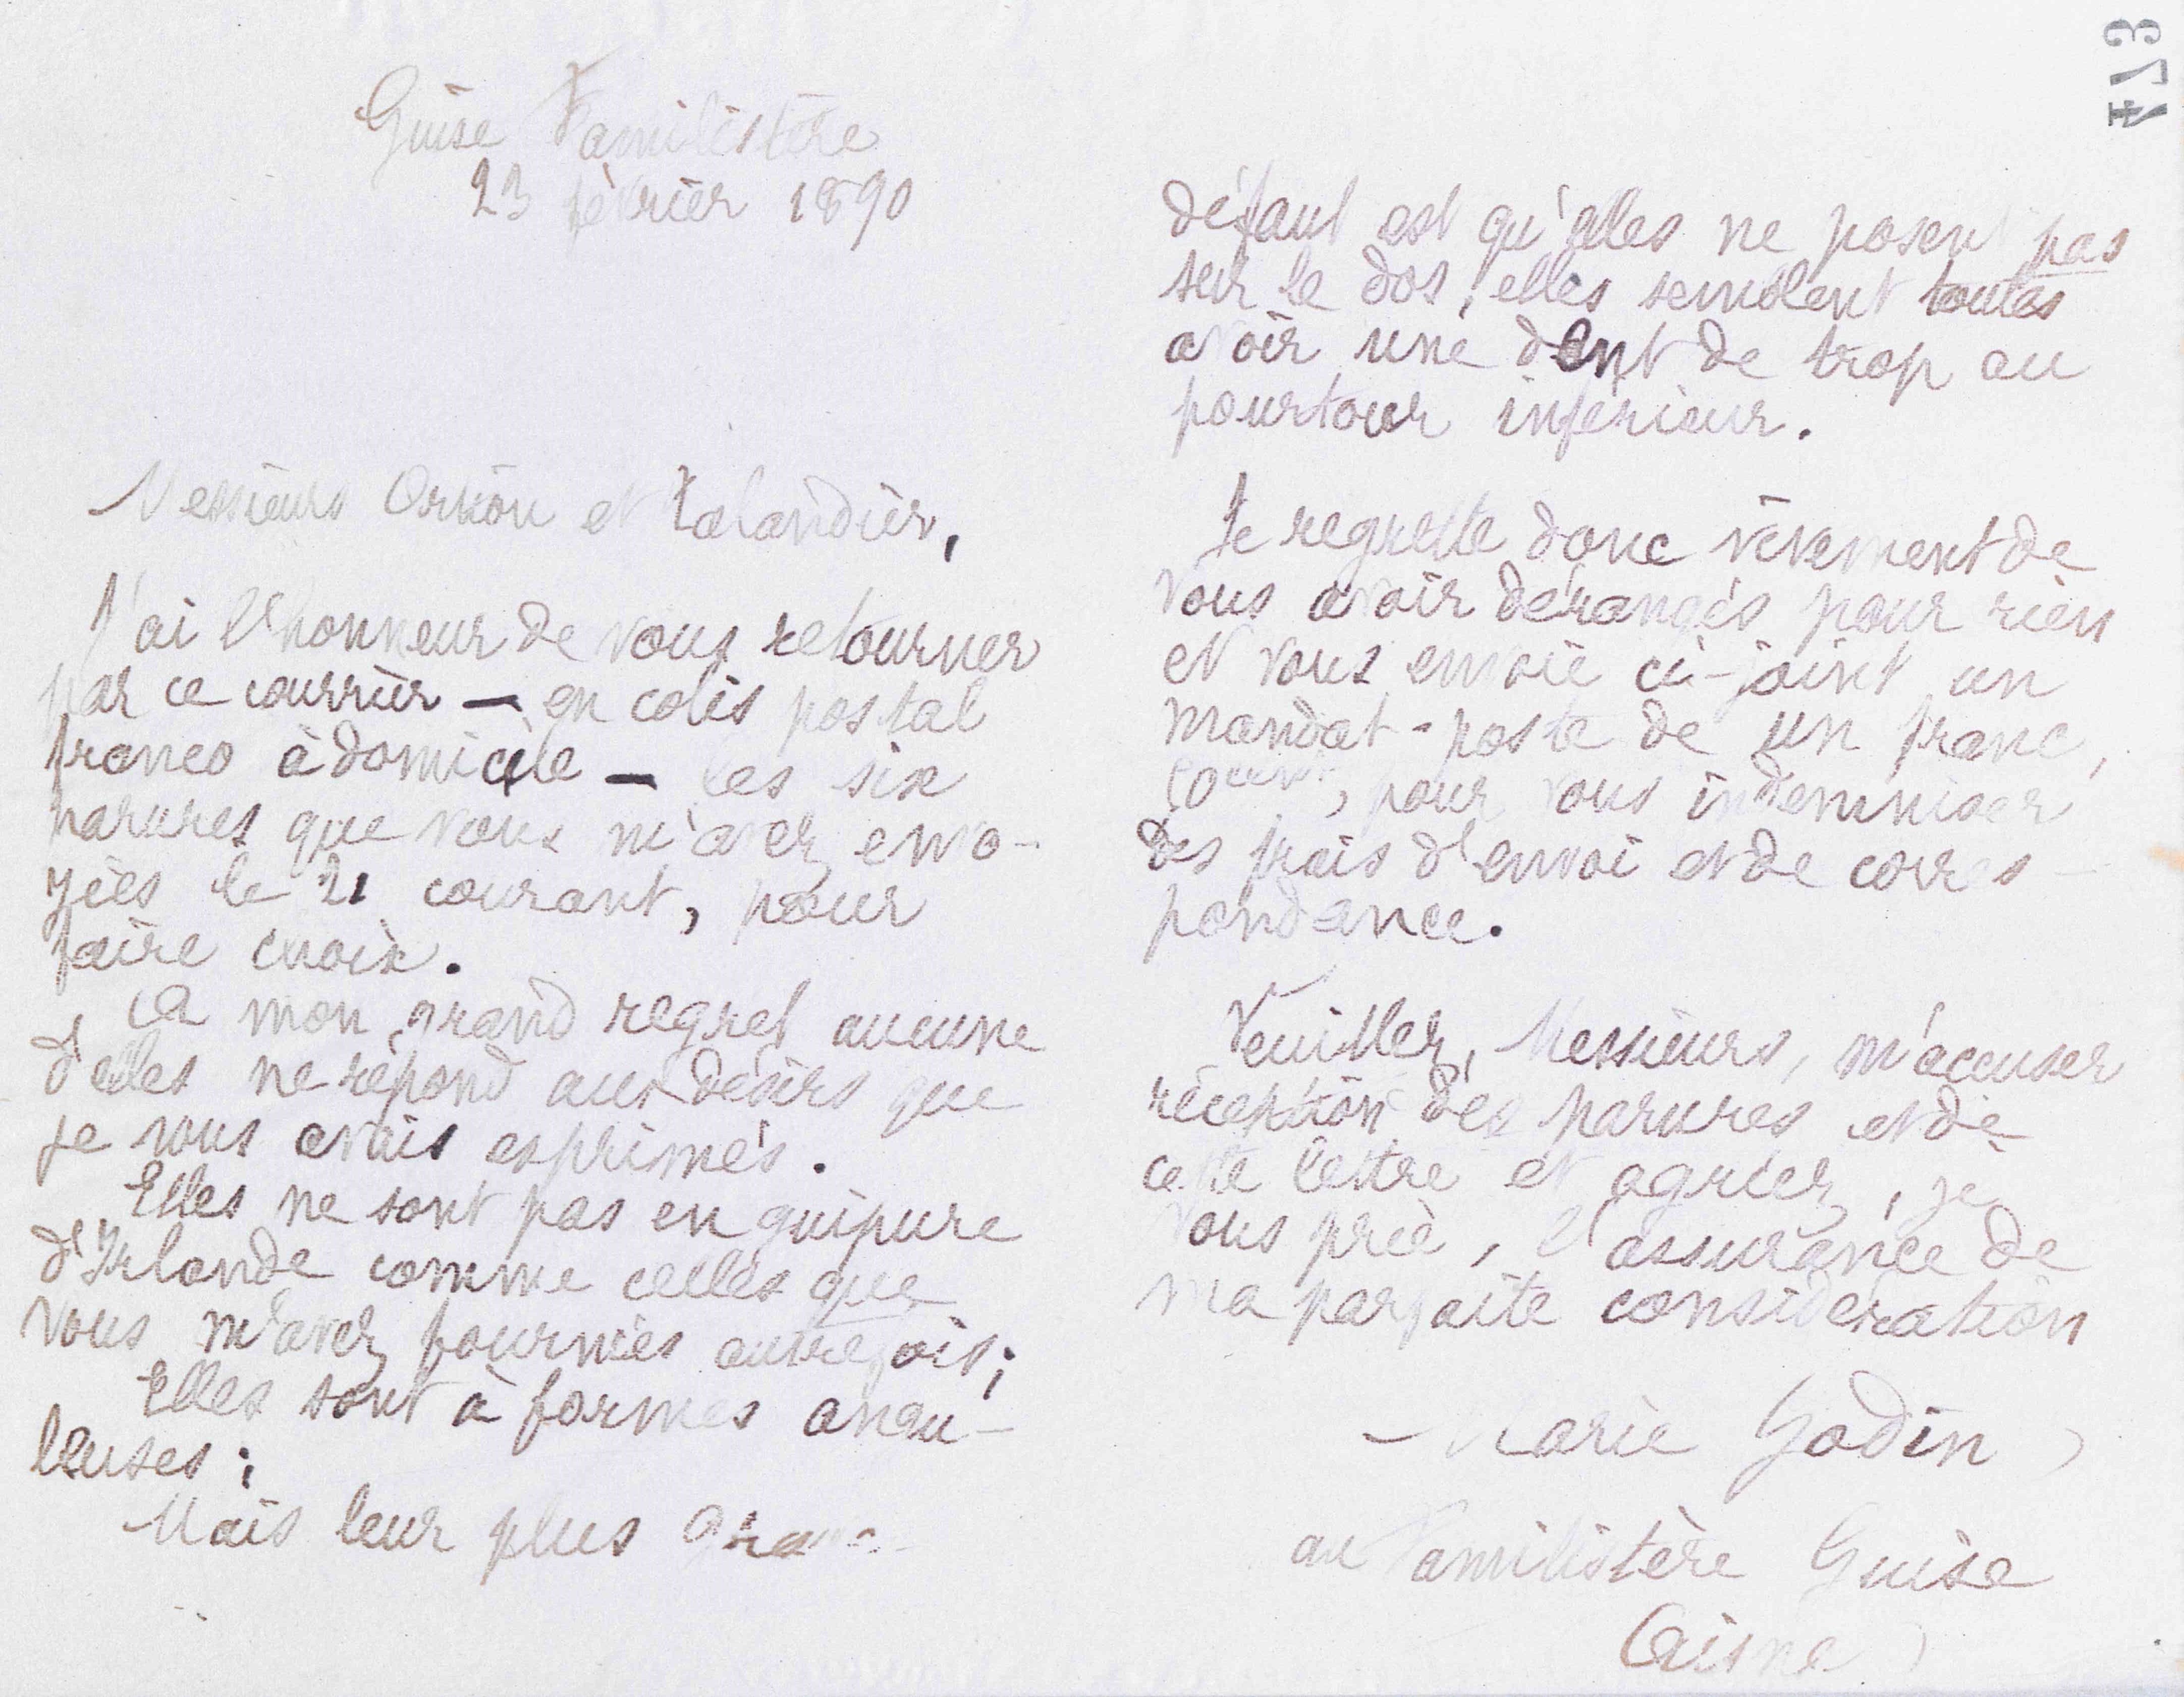 423
Guise Familistère
23 février 1890
Messieurs Orkon et Talandier,
J'ai l'honneur de vous retourner
par ce courrier — en colis postal
franco à domicile — les six
parures que vous m'avez envo-
yées le 21 courant, pour
faire choix.
A mon grand regret aucune
d'elles ne répond aux désirs que
je vous avais exprimés.
Elles ne sont pas en guipure
d'Irlande comme celles que
vous m'avez fournies autrefois;
Elles sont à formes angu-
leuses;
Mais leur plus grand
défaut est qu'elles ne posent pas
sur le dos, elles semblent toutes
avoir une dent de trop au
pourtour inférieur.
Je regrette donc vivement de
vous avoir dérangés pour rien
et vous envoie ci-joint un
mandat-poste de un franc,
pour vous indemniser
des frais d'envoi et de corres-
pondance.
Veuillez, Messieurs, m'accuser
réception des parures et de
cette lettre et agréer, je
vous prie, l'assurance de
ma parfaite considération
Marie Godin
au Familistère Guise
Aisne